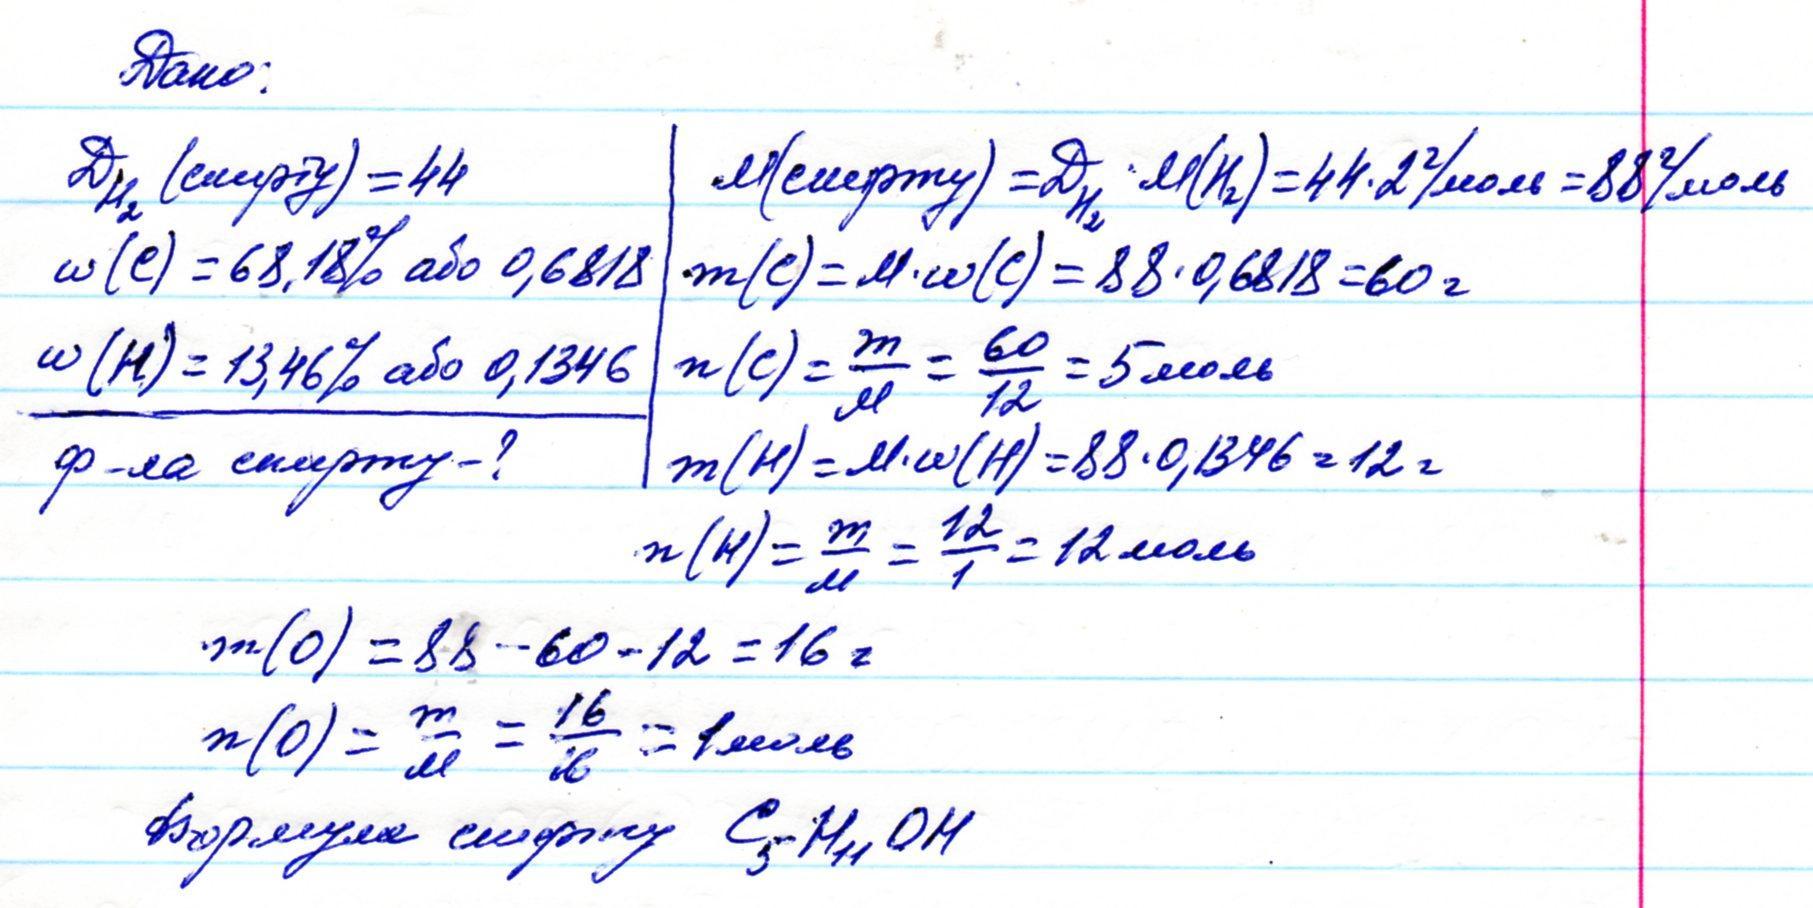 Дано:
D_H₂ (спирту) = 44
w(C) = 68,18% або 0,6818
w(H) = 13,46% або 0,1346
ф-ла спирту - ?
M(спирту) = D_H₂ · M(H₂) = 44 · 2 г/моль = 88 г/моль
m(C) = M · w(C) = 88 · 0,6818 = 60 г
n(C) = m/M = 60/12 = 5 моль
m(H) = M · w(H) = 88 · 0,1346 = 12 г
n(H) = m/M = 12/1 = 12 моль
m(O) = 88 - 60 - 12 = 16 г
n(O) = m/M = 16/16 = 1 моль
Формула спирту C₅H₁₁OH